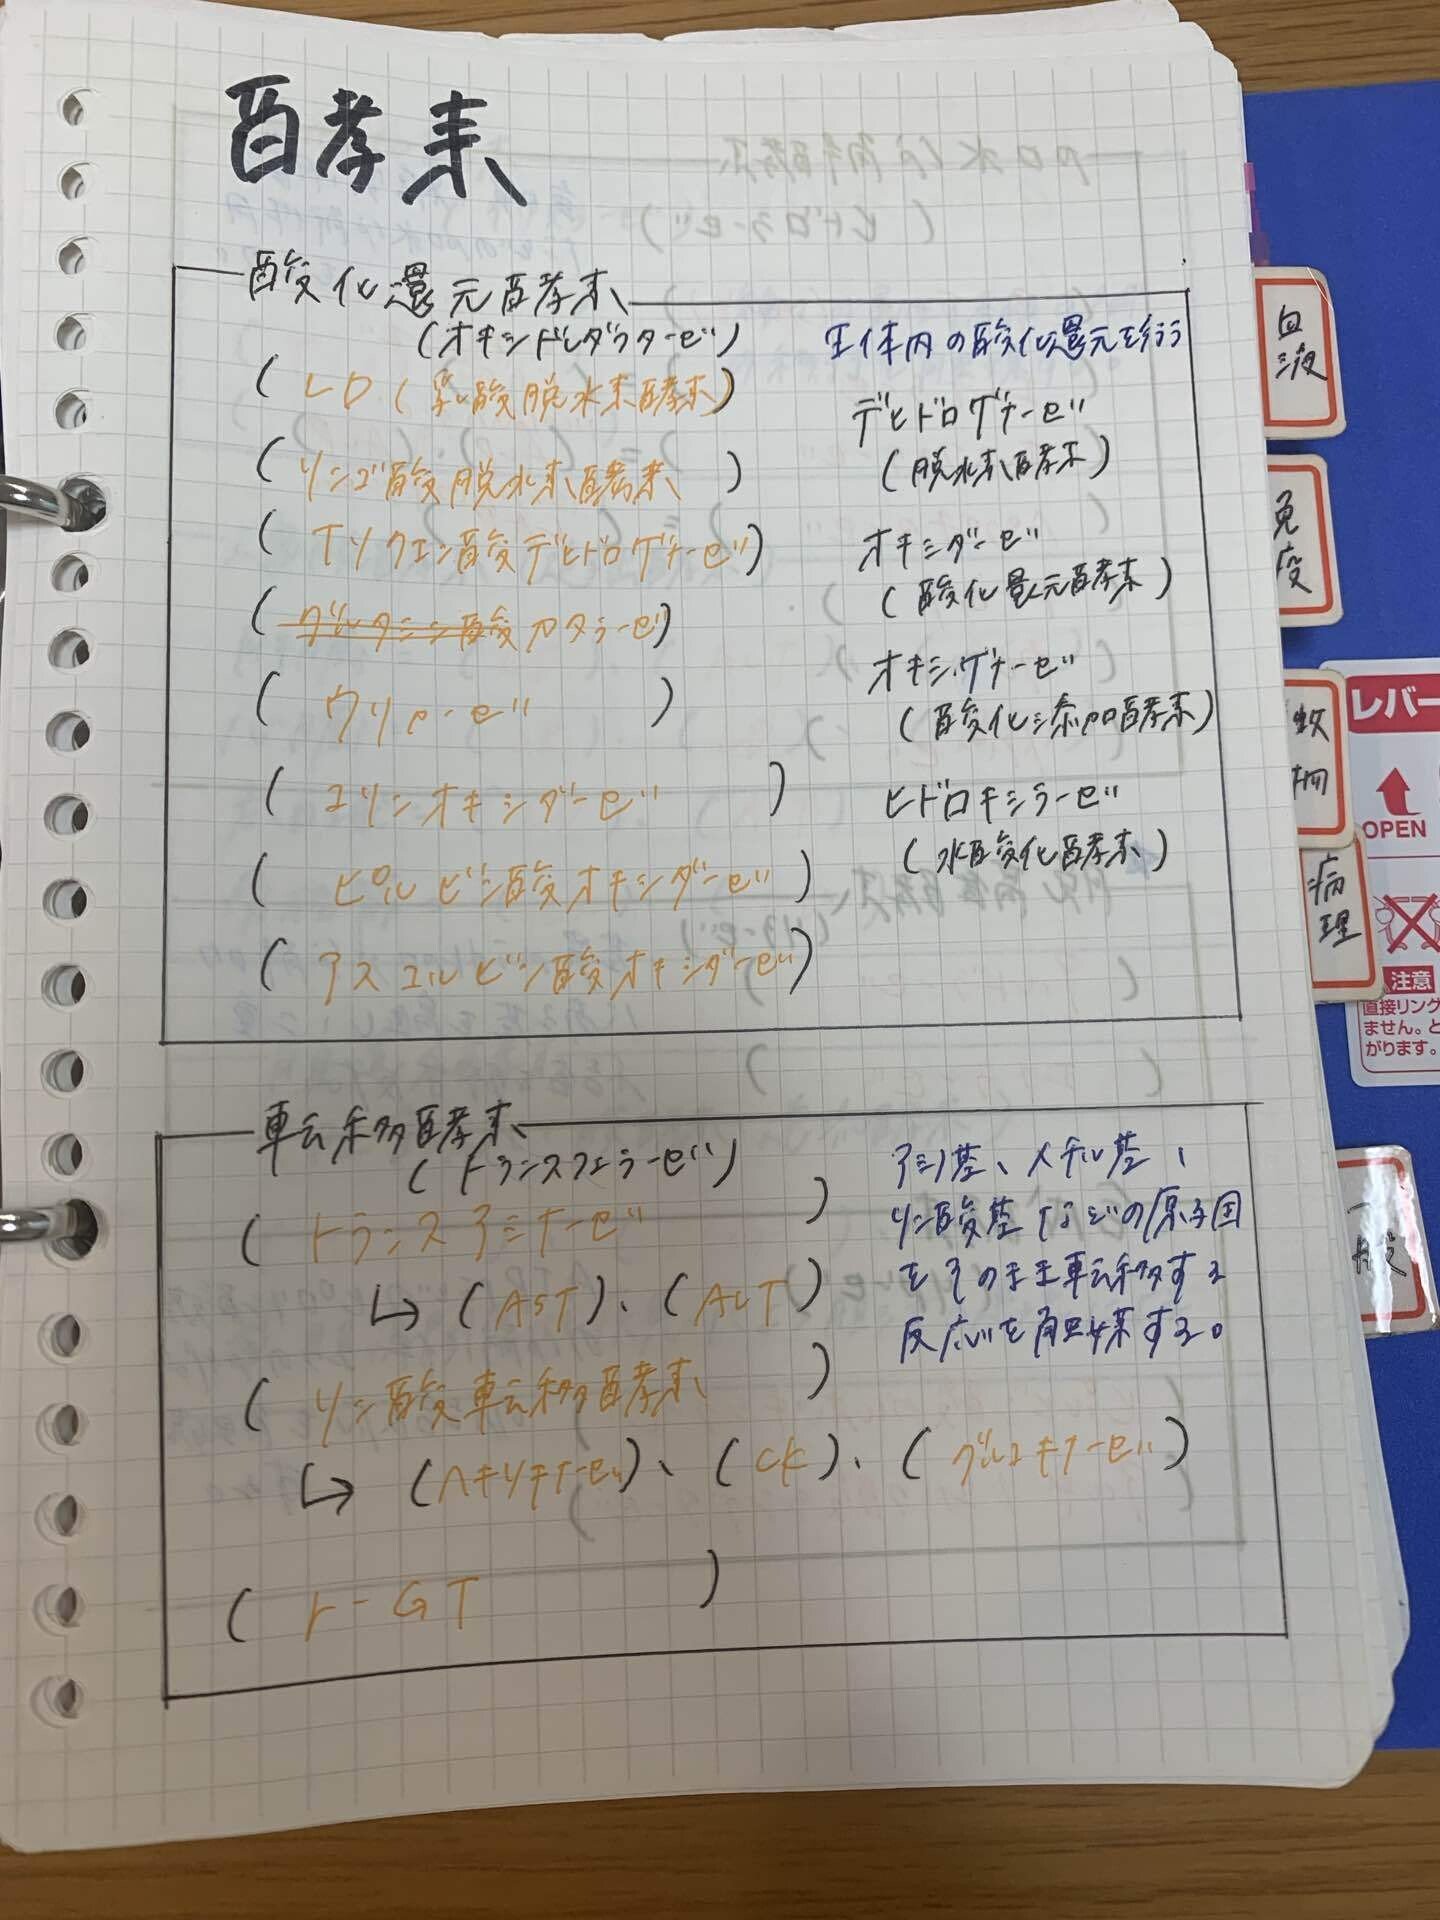 酵素
酸化還元酵素
(オキシドレダクターゼ)
生体内の酸化還元を行う
( LD (乳酸脱水素酵素)
デヒドロゲナーゼ
(脱水素酵素)
( リンゴ酸脱水素酵素 )
( Tソクエン酸デヒドロゲナーゼ)
オキシダーゼ
(酸化還元酵素)
( グルタミン酸 カタラーゼ)
オキシゲナーゼ
(酸化添加酵素)
( ウリカーゼ )
( コリンオキシダーゼ )
ヒドロキシラーゼ
(水酸化酵素)
( ピルビン酸オキシダーゼ )
( アスコルビン酸オキシダーゼ)
転移酵素
(トランスフェラーゼ)
アミノ基、メチル基、
リン酸基などの原子団
をそのまま転移する
反応を触媒する。
( トランスアミナーゼ )
↳ (AST)、(ALT)
( リン酸転移酵素 )
↳ (ヘキソキナーゼ)、(CK)、(グルコキナーゼ)
( r-GT )
血液
免疫
病理
一般
レバー
OPEN
注意
直接リング
ません。と
がります。